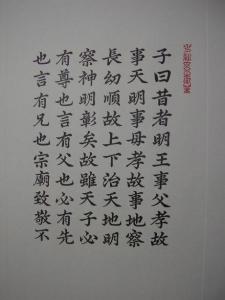 子曰昔者明王事父孝故
事天明事母孝故事地察
長幼順故上下治天地明
察神明彰矣故雖天子必
有尊也言有父也必有先
也言有兄也宗廟致敬不